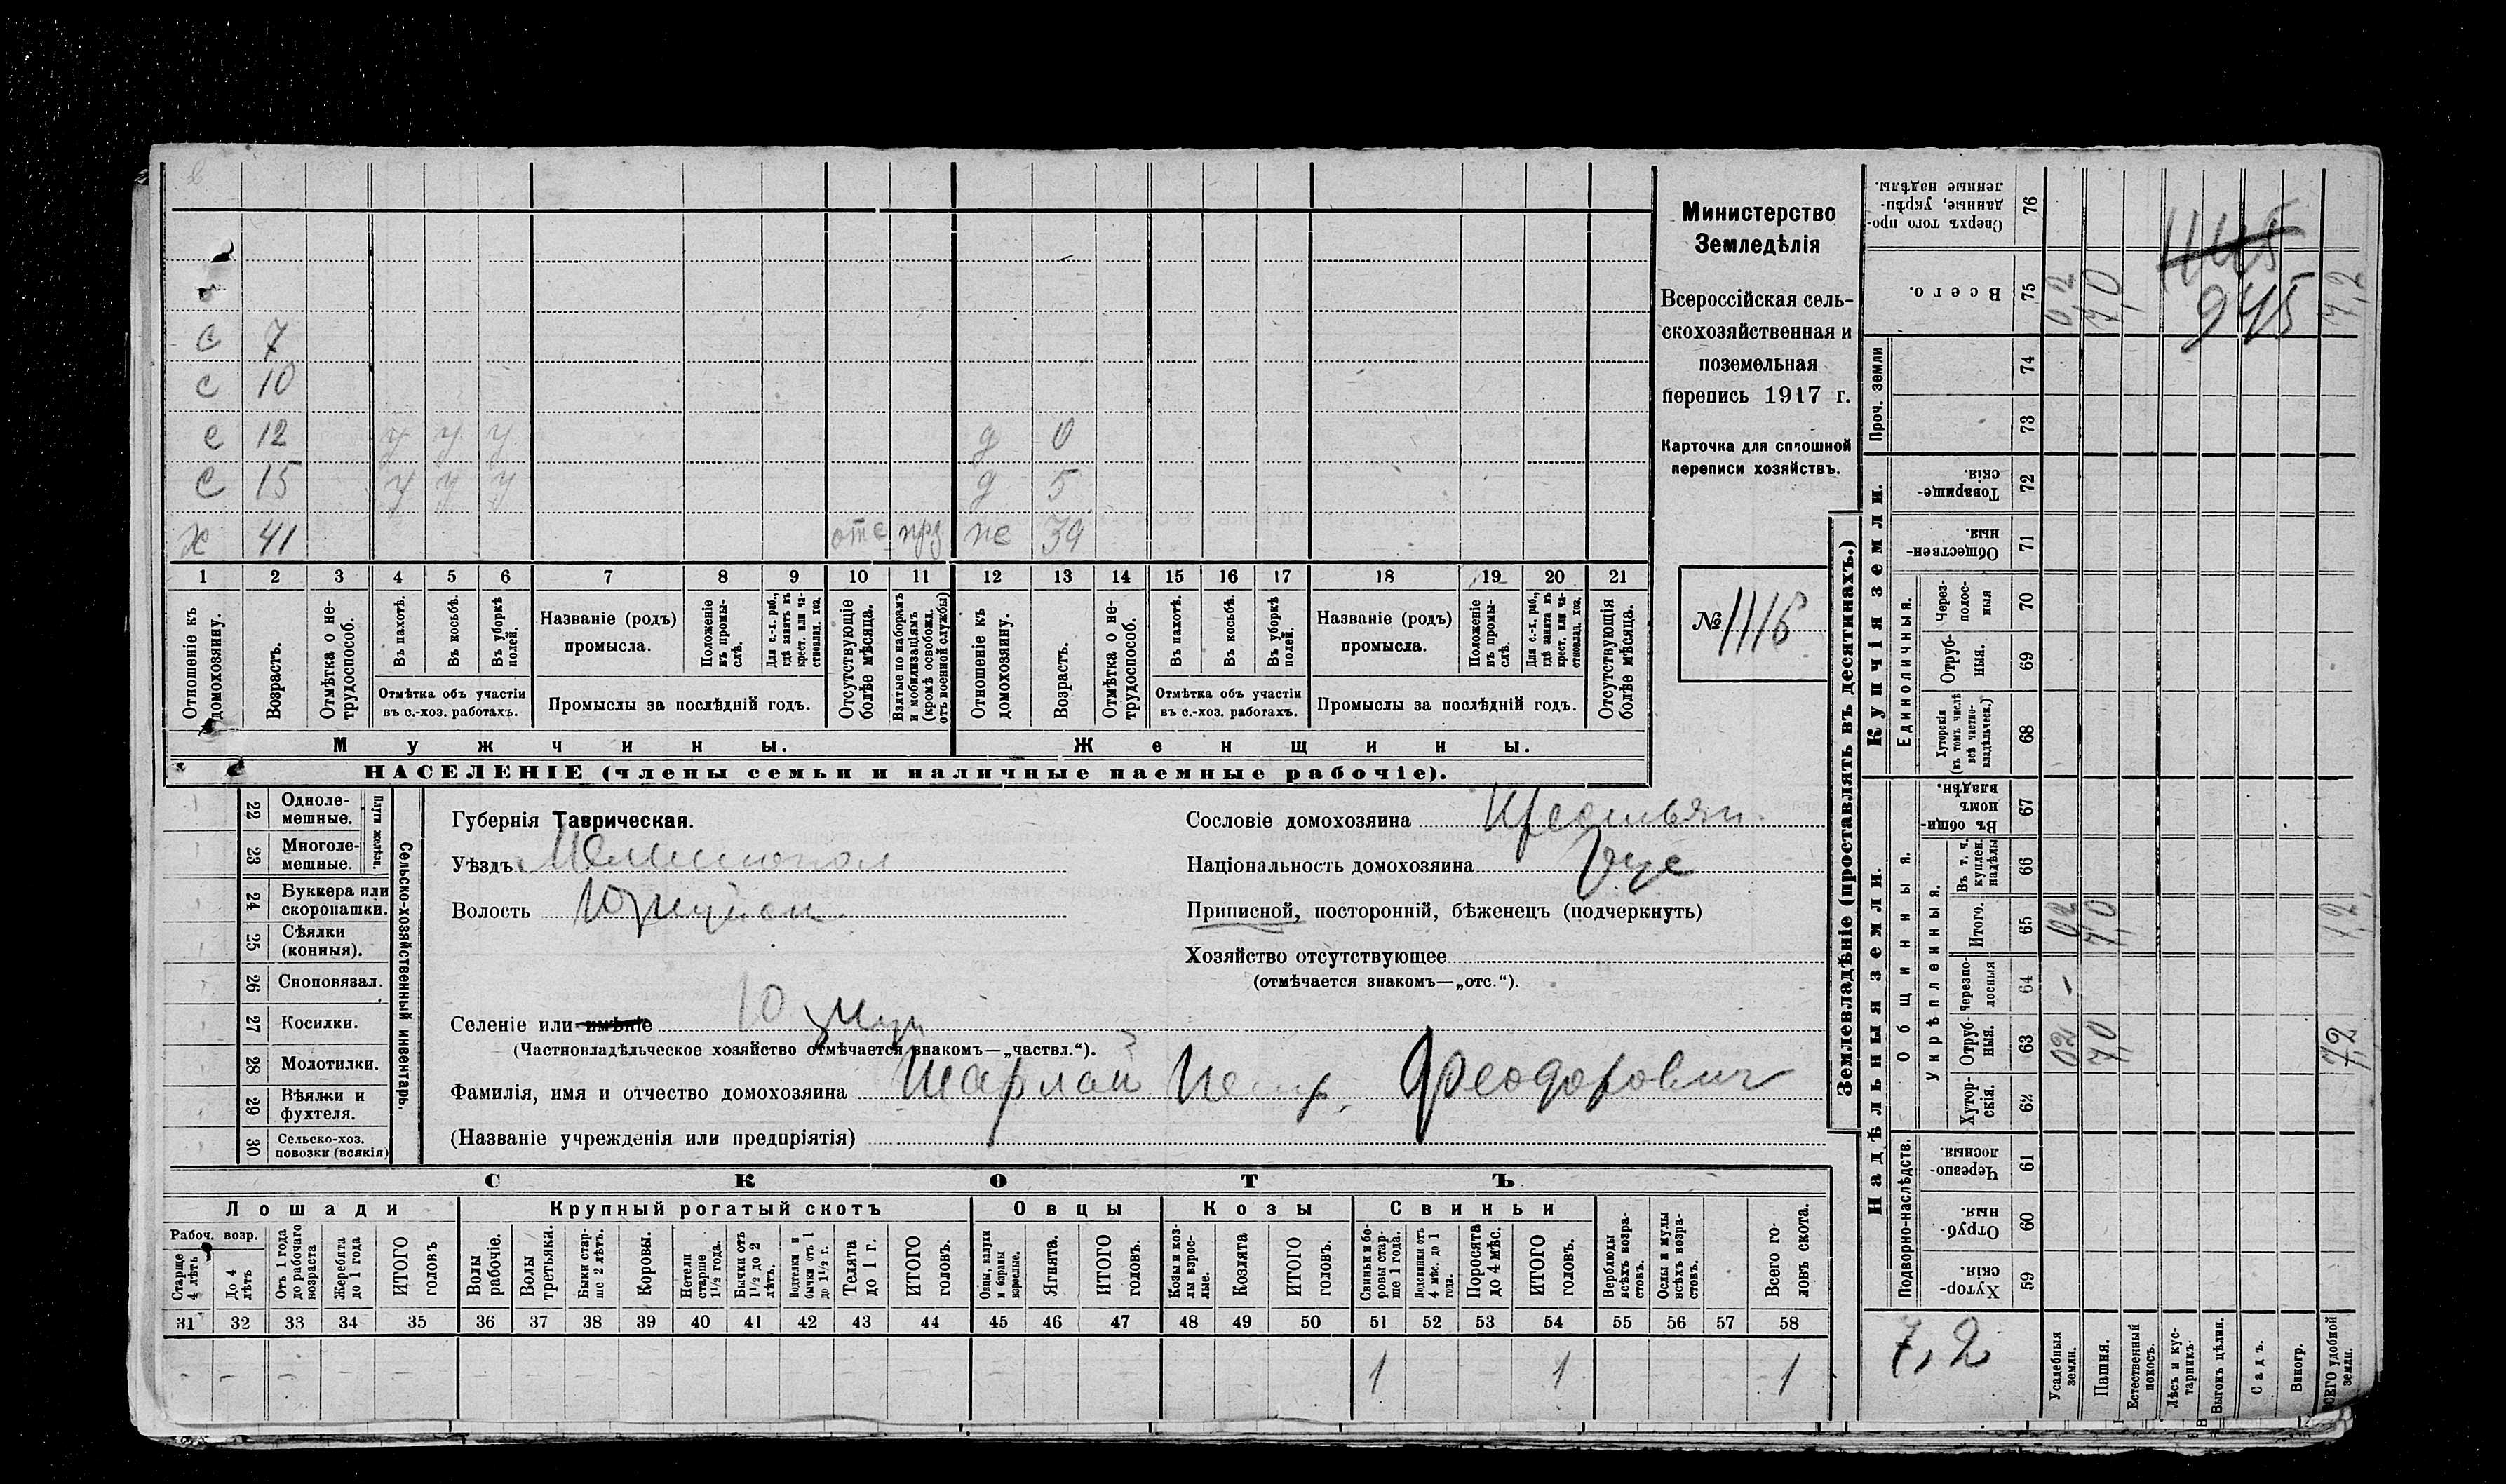 с 7
с 10
с 12 у у у д 0
с 15 у у у д 5
х 41 отс нрз же 39
1 2 3 4 5 6 7 8 9 10 11 12 13 14 15 16 17 18 19 20 21
Отношеніе къ домохозяину.
Возрастъ.
Отмѣтка о не-трудоспособ.
Въ пахотѣ.
Въ косьбѣ.
Въ уборкѣ полей.
Отмѣтка объ участіи въ с.-хоз. работахъ.
Названіе (родъ) промысла.
Положеніе въ промы-слѣ.
Для с.-х. раб., гдѣ занятъ въ крест. или ча-стновлад. хоз.
Промыслы за послѣдній годъ.
Отсутствующіе болѣе мѣсяца.
Взятые по наборамъ и мобилизаціямъ (кромѣ освобожд. отъ военной службы)
Отношеніе къ домохозяину.
Возрастъ.
Отмѣтка о не-трудоспособ.
Въ пахотѣ.
Въ косьбѣ.
Въ уборкѣ полей.
Отмѣтка объ участіи въ с.-хоз. работахъ.
Названіе (родъ) промысла.
Положеніе въ промы-слѣ.
Для с.-х. раб., гдѣ занята въ крест. или ча-стновлад. хоз.
Промыслы за послѣдній годъ.
Отсутствующія болѣе мѣсяца.
Мужчины. Женщины.
НАСЕЛЕНІЕ (члены семьи и наличные наемные рабочіе).
Министерство
Земледѣлія
Всероссійская сель-
скохозяйственная и
поземельная
перепись 1917 г.
Карточка для сплошной
переписи хозяйствъ.
№ 1116
22 Одноле-мешные.
23 Многоле-мешные.
Плуги желѣзн.
24 Буккера или скоропашки.
25 Сѣялки (конныя).
26 Сноповязал.
27 Косилки.
28 Молотилки.
29 Вѣялки и фухтеля.
30 Сельско-хоз. повозки (всякія)
Сельско-хозяйственный инвентарь.
Губернія Таврическая.
Уѣздъ Мелитопол
Волость Юзкуйск
Селеніе или имѣніе Юзкуи
(Частновладѣльческое хозяйство отмѣчается знакомъ—„частвл.“).
Фамилія, имя и отчество домохозяина Шарлай Петр. Феодорович
(Названіе учрежденія или предпріятія)
Сословіе домохозяина Крестьян.
Національность домохозяина Рус
Приписной, посторонній, бѣженецъ (подчеркнуть)
Хозяйство отсутствующее
(отмѣчается знакомъ—„отс.“).
СКОТЪ
Лошади Крупный рогатый скотъ Овцы Козы Свиньи
Рабоч. возр.
Старше 4 лѣтъ
До 4 лѣтъ
Отъ 1 года до рабочаго возраста
Жеребята до 1 года
ИТОГО головъ
Волы рабочіе.
Волы третьяки.
Быки стар-ше 2 лѣтъ.
Коровы.
Нетели старше 1½ года.
Бычки отъ 1½ до 2 лѣтъ.
Подтелки и бычки отъ 1 до 1½ г.
Телята до 1 г.
ИТОГО головъ.
Овцы, валухи и бараны взрослые.
Ягнята.
ИТОГО головъ.
Козы и коз-лы взрос-лые.
Козлята
ИТОГО головъ.
Свиньи и бо-ровы стар-ше 1 года.
Подсвинки отъ 4 мѣс. до 1 года.
Поросята до 4 мѣс.
ИТОГО головъ.
Верблюды всѣхъ возра-стовъ.
Ослы и мулы всѣхъ возра-стовъ.
Всего го-ловъ скота.
31 32 33 34 35 36 37 38 39 40 41 42 43 44 45 46 47 48 49 50 51 52 53 54 55 56 57 58
- - - - - - - - - - - - - - 1 1 1
Землевладѣніе (проставлять въ десятинахъ.)
Надѣльныя земли. Купчія земли. Проч. земли
Подворно-наслѣдств. Общинныя. Укрѣпленныя. Единоличныя.
Хутор-скія. 59
Отруб-ныя. 60
Черезпо-лосныя. 61
Хутор-скія. 62
Отруб-ныя. 63 02 7,0 7,2
Черезпо-лосныя 64 -
Итого. 65 02 7,0 7,2
Въ т. ч. куплен. надѣлы 66
Въ общин-номъ владѣн. 67
Хуторскія (въ томъ числѣ всѣ частно-владѣльческ.) 68
Отруб-ныя. 69
Через-полос-ныя 70
Обществен-ныя. 71
Товарище-скія. 72
73
74
Всего. 75 0,2 7,0 7,2
Сверхъ того про-данные, укрѣп-ленные надѣлы. 76
1115
945
7,2
Усадебныя земли.
Пашня.
Естественный покосъ.
Лѣсъ и кус-тарникъ.
Выгонъ цѣлин.
Садъ.
Виногр.
ВСЕГО удобной земли.